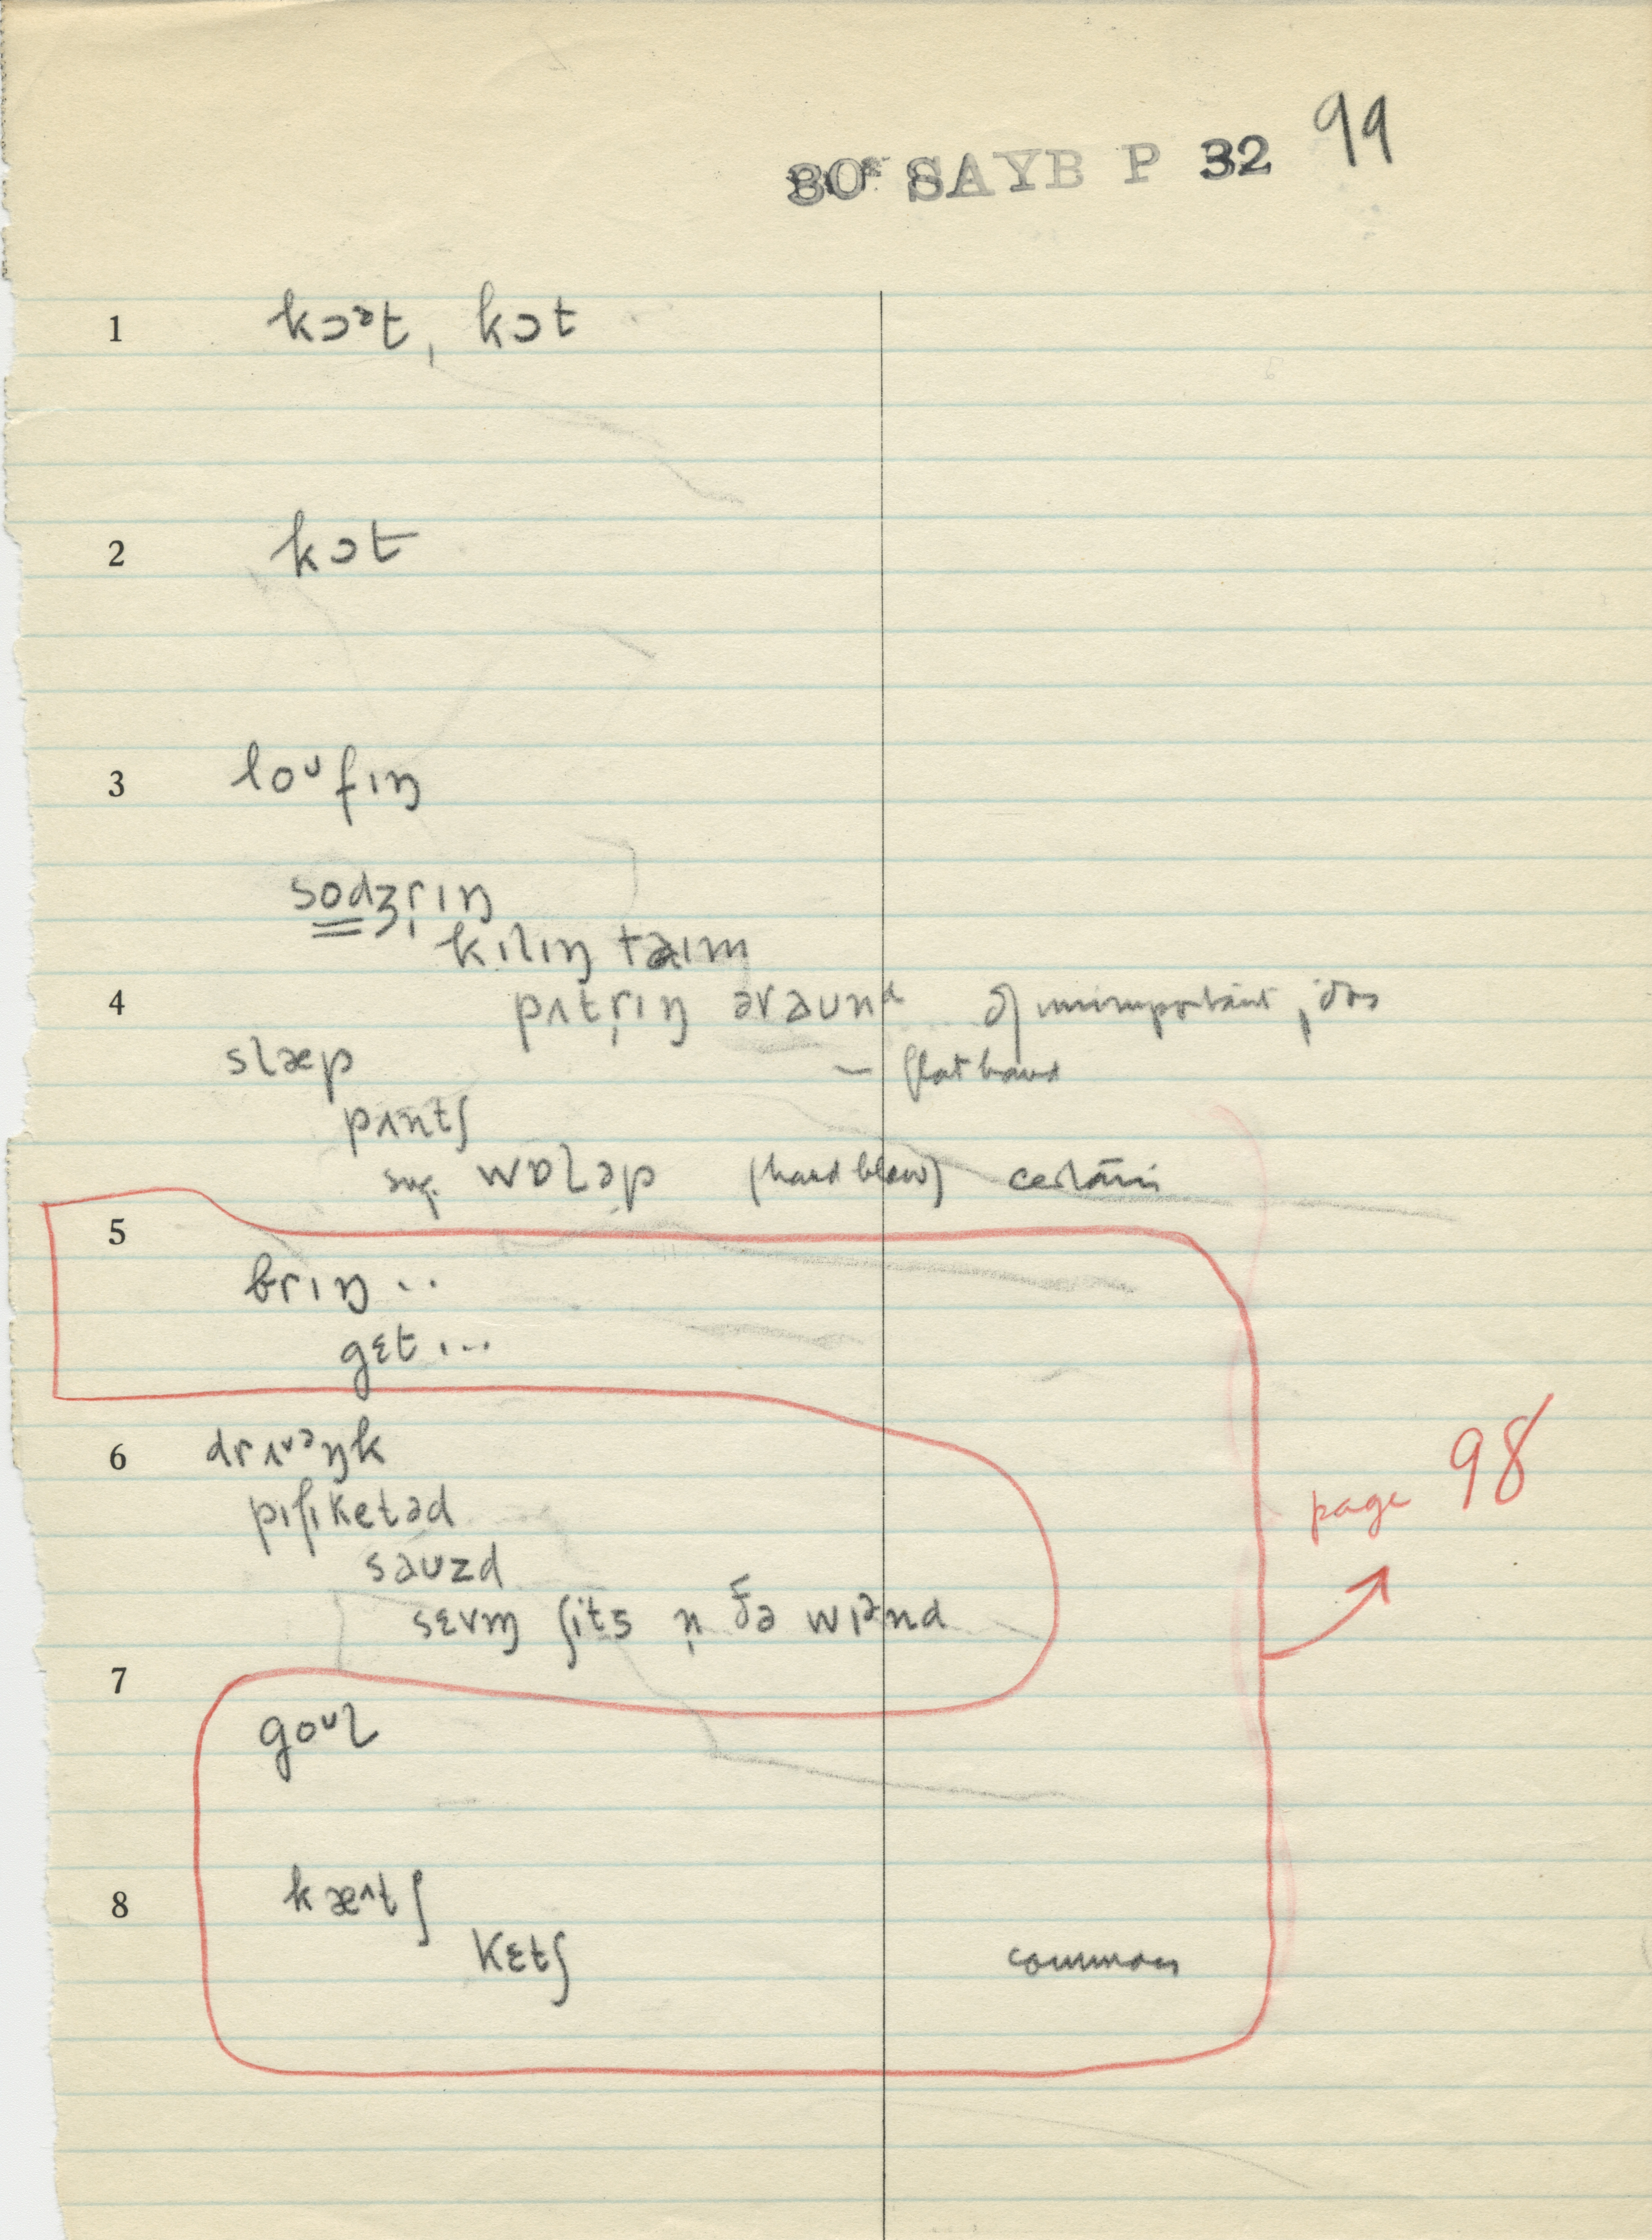 30ᴱ SAYB P 32 99
1 kɔᵊt, kɔt
2 kɔt
3 loᶷfɪŋ
sodʒr̩ɪŋ
kɪlɪŋ taɪm
4 pʌtr̩ɪŋ əraund of unimportant jobs
slæp — flat hand
pʌntʃ
sug. wɒləp (hard blow) certain
5 brɪŋ ..
gɛt ...
6 drʌᶷᵊŋk
pɪfɪketəd
sauzd
sɛvm̩ ʃits n̩ ðə wɪᵊnd
7 goᶷl
page 98
8 kæᶦtʃ
kɛtʃ common